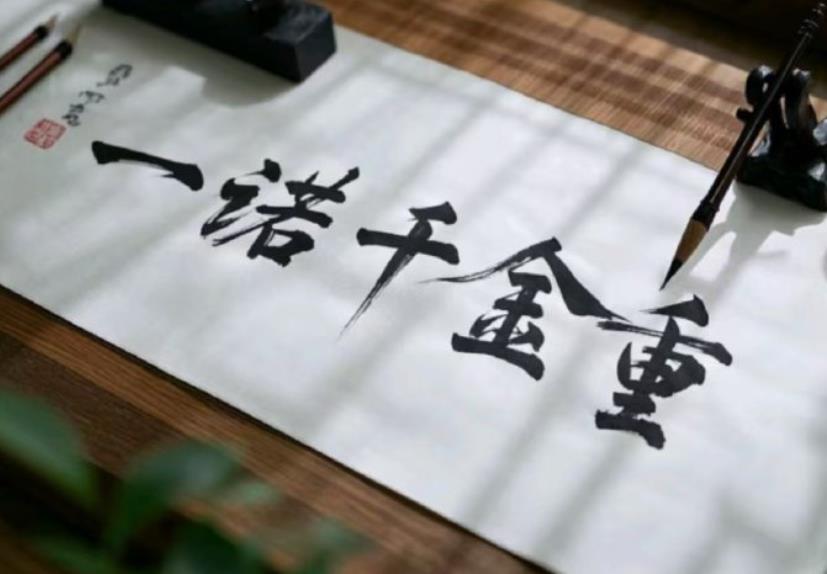 一诺千金重